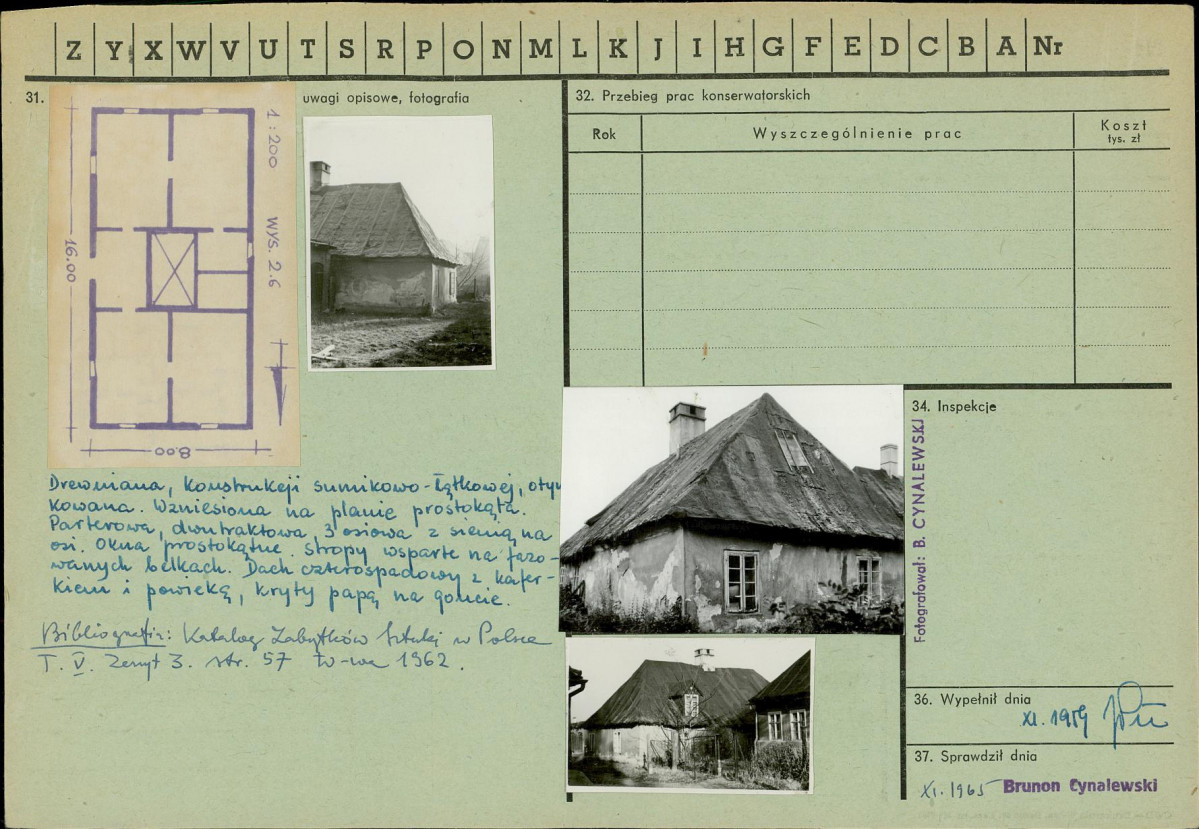 Z Y X W V U T S R P O N M L K J I H G F E D C B A Nr
31.
uwagi opisowe, fotografia
1:200
WYS. 2.6
16.00
8.00
Drewniana, konstrukcji sumikowo-łątkowej, otyn
kowana. Wzniesiona na planie prostokąta.
Parterowa, dwutraktowa 3 osiowa z sienią na
osi. Okna prostokątne. Stropy wsparte na fazo-
wanych belkach. Dach czterospadowy z kafer-
kiem i powieką, kryty papą na goncie.
Bibliografia: Katalog Zabytków Sztuki w Polsce
T. V. Zeszyt 3. str. 57 W-wa 1962.
32. Przebieg prac konserwatorskich
Rok
Wyszczególnienie prac
Koszt
tys. zł
34. Inspekcje
Fotografował: B. CYNALEWSKI
36. Wypełnił dnia
XI. 1959
37. Sprawdził dnia
XI. 1965 Brunon Cynalewski